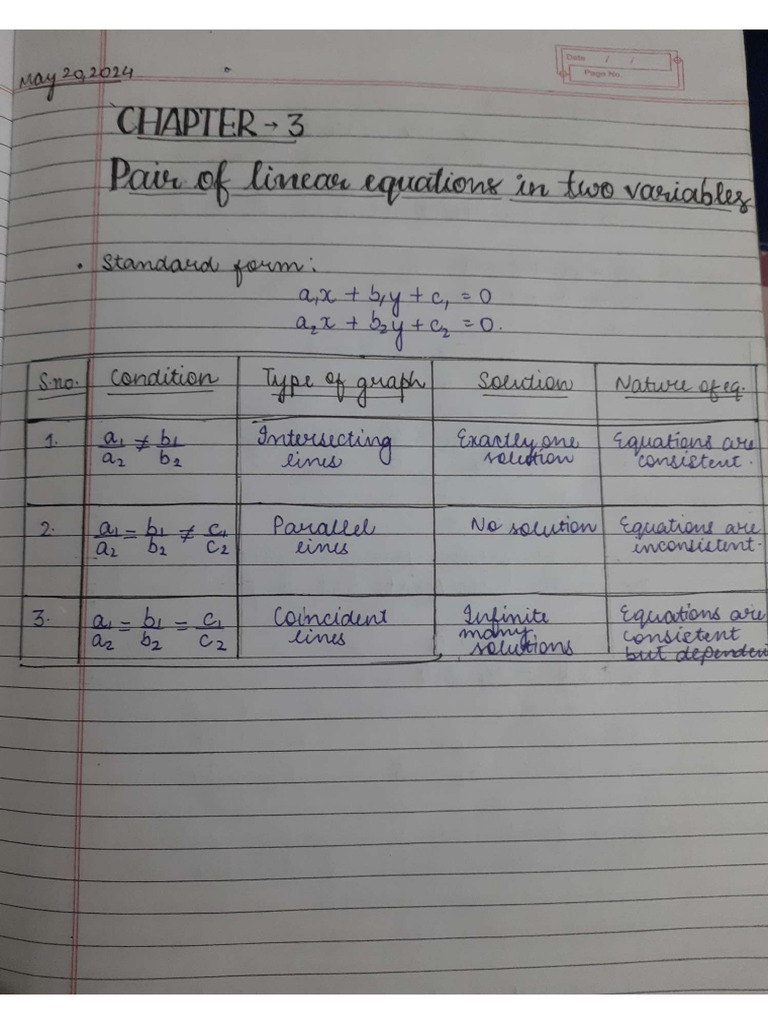 May 20, 2024
Date / /
Page No.
CHAPTER → 3
Pair of linear equations in two variables
• Standard form:
a₁x + b₁y + c₁ = 0
a₂x + b₂y + c₂ = 0.
S.no. Condition Type of graph Solution Nature of eq.
1. a₁/a₂ ≠ b₁/b₂ Intersecting lines Exactly one solution Equations are consistent.
2. a₁/a₂ = b₁/b₂ ≠ c₁/c₂ Parallel lines No solution Equations are inconsistent.
3. a₁/a₂ = b₁/b₂ = c₁/c₂ Coincident lines Infinite many solutions Equations are consistent but dependent